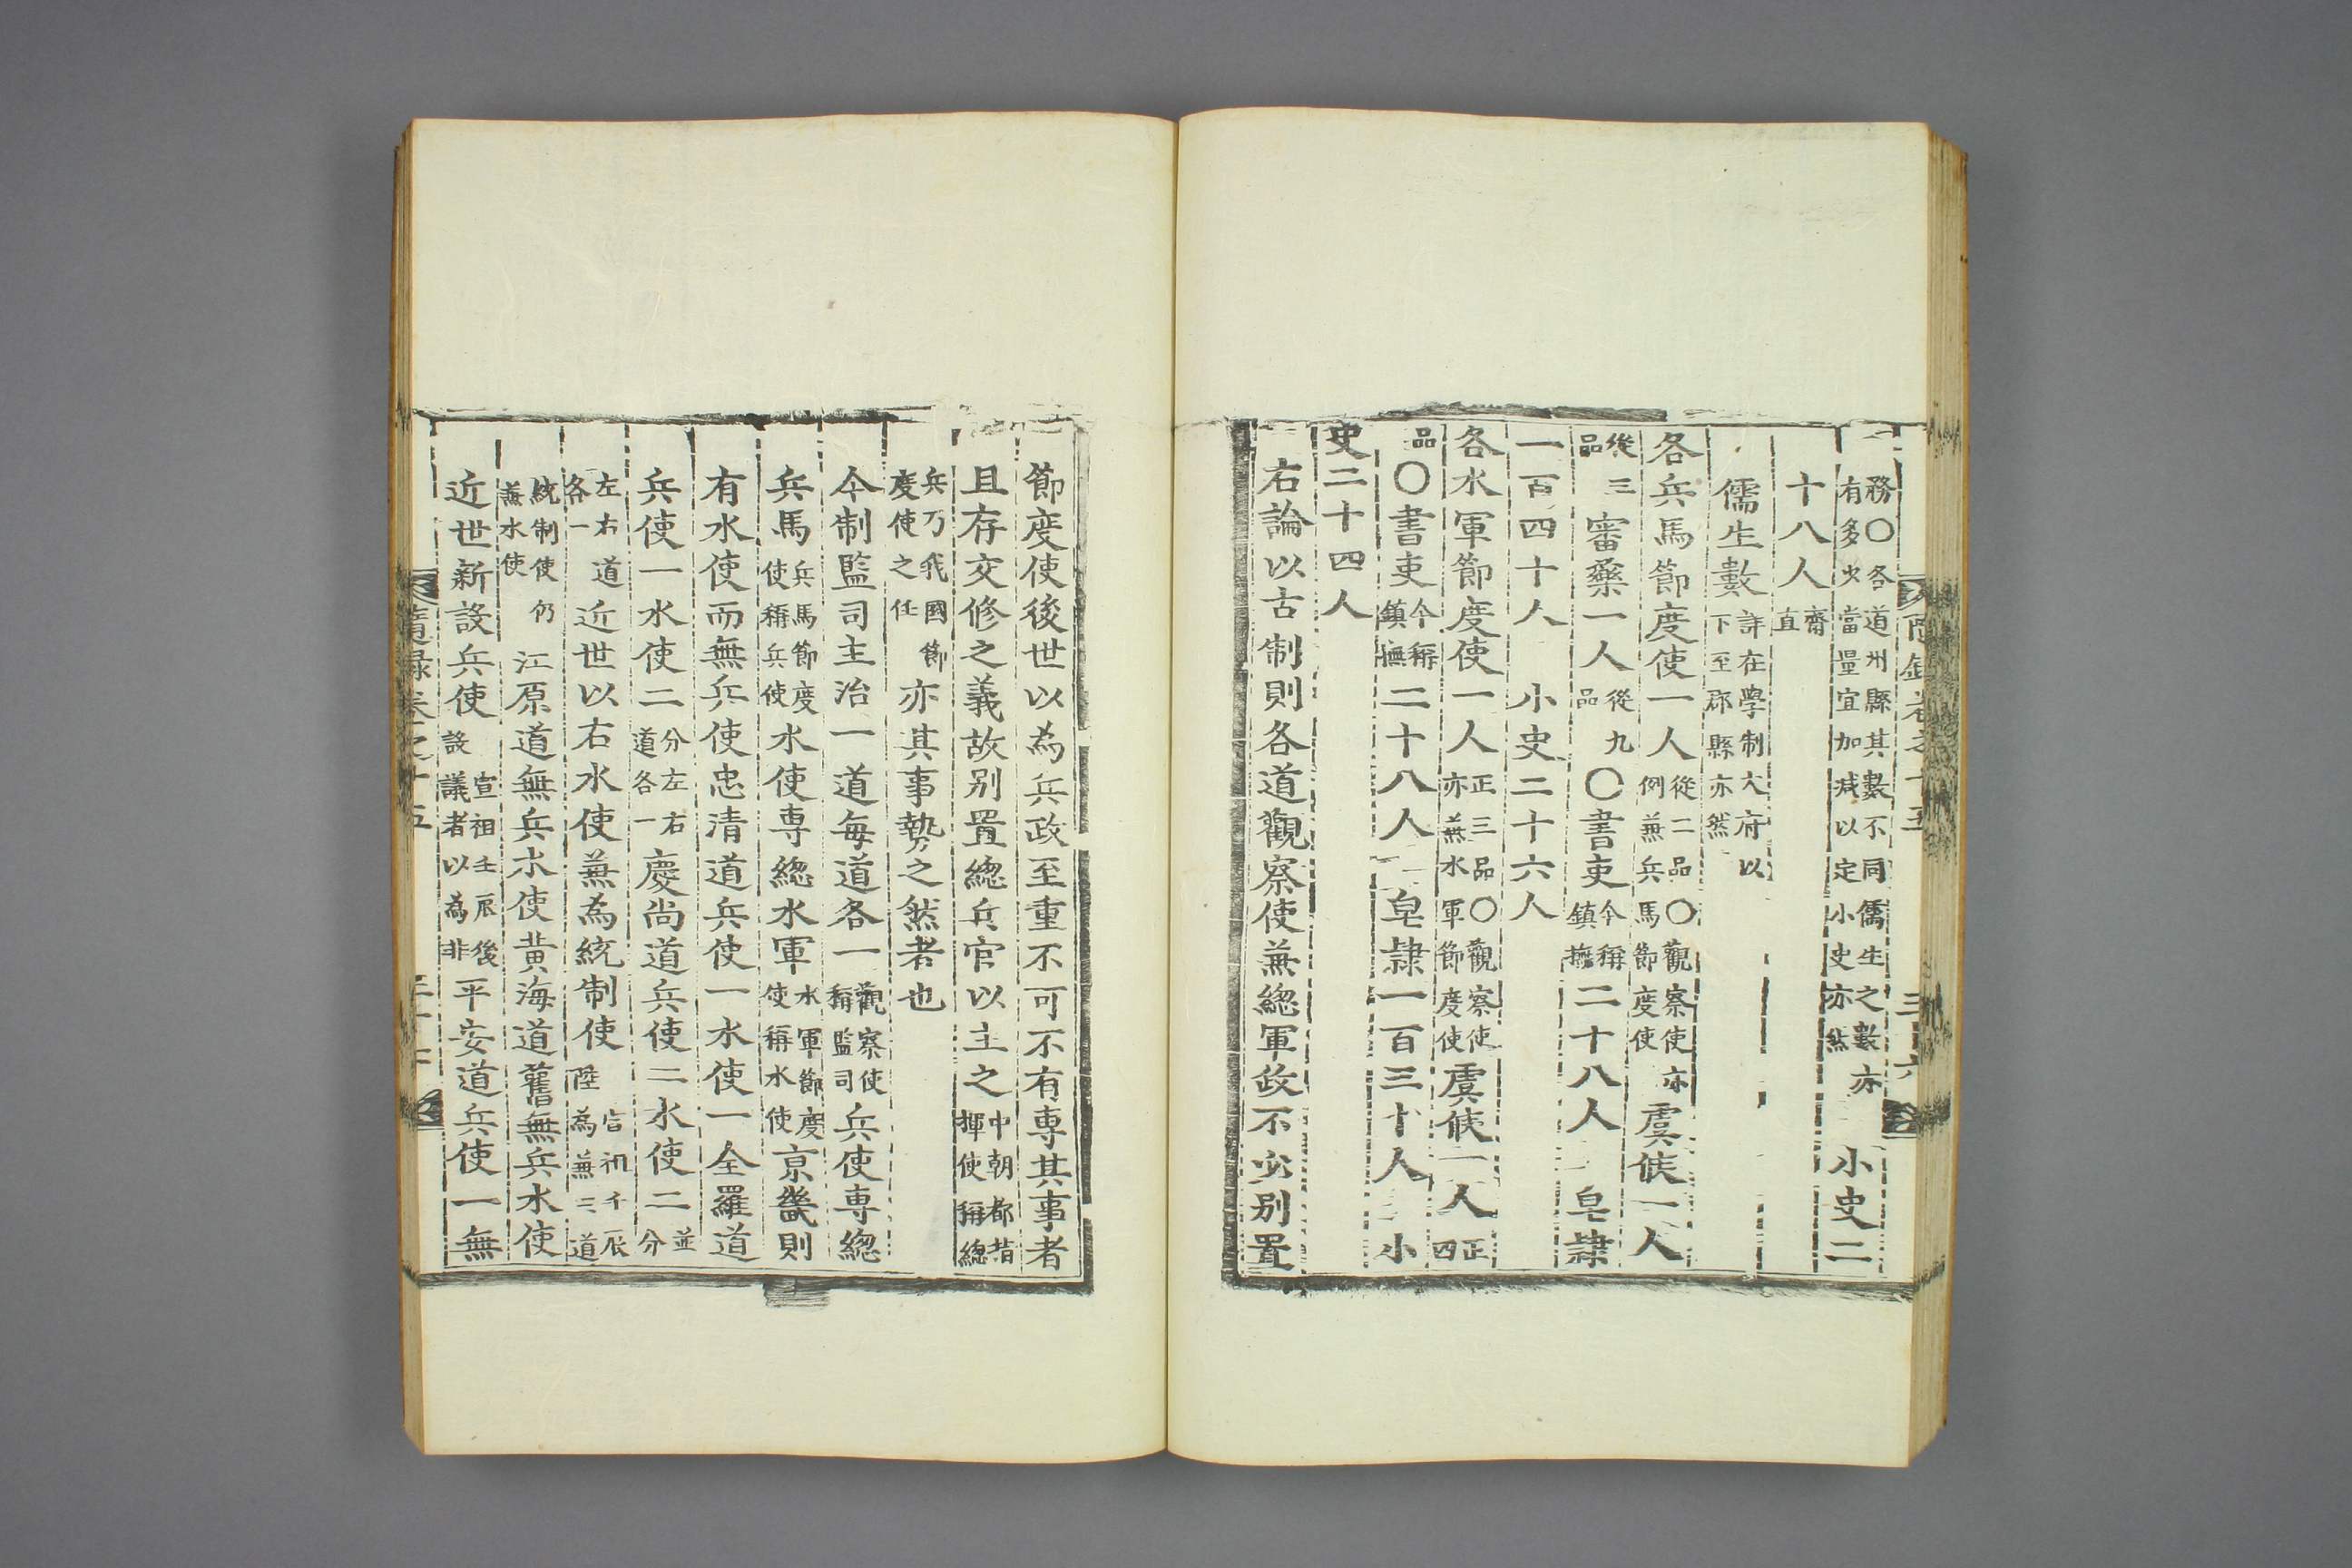 務〇各道州縣其數不同儒生之數亦有多少當量宜加減以定小史亦然 小史二
十八人齋直
儒生數詳在學制大府以下至郡縣亦然
各兵馬節度使一人從二品〇觀察使亦例兼兵馬節度使虞候一人
從三品審藥一人從九品〇書吏今稱鎮撫二十八人 皂隷
一百四十人 小史二十六人
各水軍節度使一人正三品〇觀察使亦兼水軍節度使虞候一人正四
品〇書吏今稱鎮撫二十八人 皂隷一百三十人 小
史二十四人
右論以古制則各道觀察使兼總軍政不必別置
節度使後世以為兵政至重不可不有專其事者
且存交修之義故別置總兵官以主之中朝都指揮使稱總
兵乃我國節度使之任亦其事勢之然者也
今制監司主治一道每道各一觀察使稱監司兵使專總
兵馬兵馬節度使稱兵使水使專總水軍水軍節度使稱水使京畿則
有水使而無兵使忠清道兵使一水使一全羅道
兵使一水使二分左右道各一慶尚道兵使二水使二並分
左右道各一近世以右水使兼為統制使 陸為兼三道
統制使仍兼水使江原道無兵水使黃海道舊無兵水使
近世新設兵使宣祖壬辰後設議者以為非平安道兵使一無
隨錄卷之十五